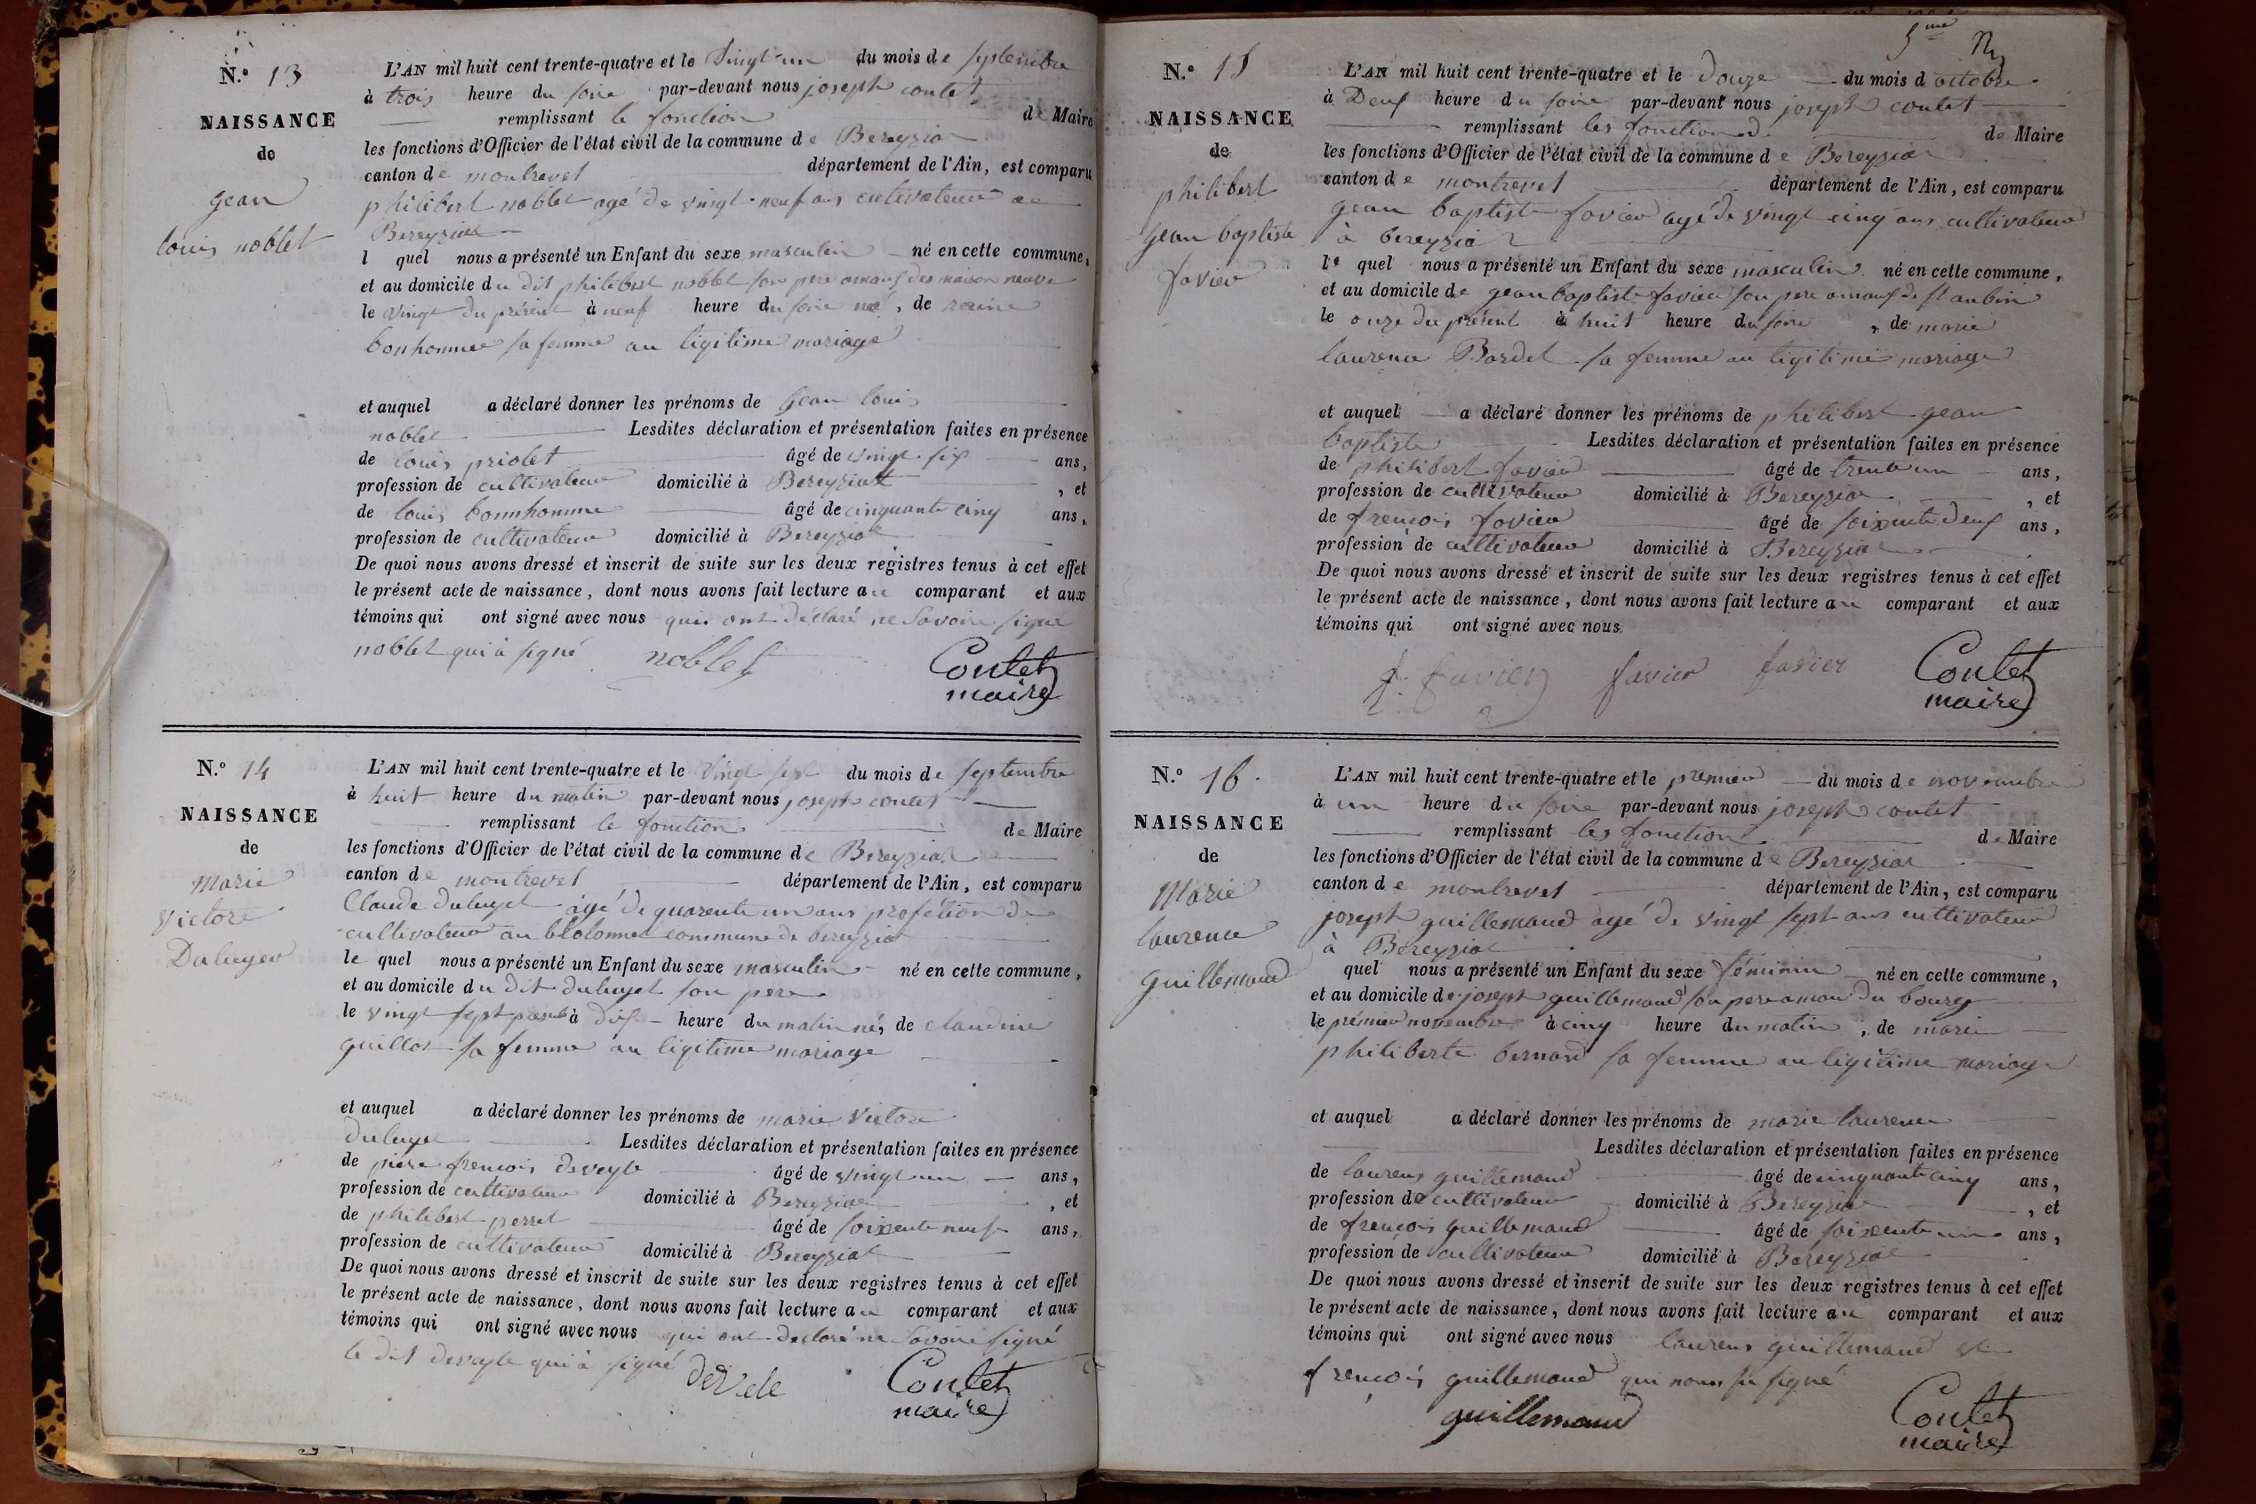 N.º 13
NAISSANCE
de
gean
louis noblet
L'AN mil huit cent trente-quatre et le vingt un du mois de septembre
à trois heure du soire par-devant nous joseph coulet
remplissant le fonction de Maire
les fonctions d'Officier de l'état civil de la commune de Bereyziat
canton de montrevel département de l'Ain, est comparu
philibert noblet agé de vingt neuf ans cultivateur
Bereyziat
l quel nous a présenté un Enfant du sexe masculin né en cette commune,
et au domicile du dit philibert noblet son pere des maison neuve
le vingt du présent à neuf heure du soire né, de
bonhomme sa femme au ligitime mariage
et auquel a déclaré donner les prénoms de gean louis
noblet Lesdites déclaration et présentation faites en présence
de louis priolet âgé de vingt six ans,
profession de cultivateur domicilié à Bereyziat, et
de louis bonnhomme âgé de cinquante cinq ans,
profession de cultivateur domicilié à Bereyziat
De quoi nous avons dressé et inscrit de suite sur les deux registres tenus à cet effet
le présent acte de naissance, dont nous avons fait lecture au comparant et aux
témoins qui ont signé avec nous qui ont déclaré ne savoire signe
noblet qui à signé noblet Coulet
maire
N.º 14
NAISSANCE
de
Marie
Victore
L'AN mil huit cent trente-quatre et le vingt sept du mois de septembre
à huit heure du matin par-devant nous joseph coulet
remplissant le fonction de Maire
les fonctions d'Officier de l'état civil de la commune de Bereyziat
canton de montrevel département de l'Ain, est comparu
Claude dubuyet agé de quarente un ans profétion de
cultivateur au commune de bereyziat
le quel nous a présenté un Enfant du sexe masculin né en cette commune,
et au domicile du dit dubuyet son pere
le vingt sept à dix heure du matin né, de claudine
guillot sa femme au ligitime mariage
et auquel a déclaré donner les prénoms de marie victore
Lesdites déclaration et présentation faites en présence
de piere frencois deveyle âgé de vingt un ans,
profession de cultivateur domicilié à Bereyziat, et
de philibert perret âgé de soixente neuf ans,
profession de cultivateur domicilié à Bereyziat
De quoi nous avons dressé et inscrit de suite sur les deux registres tenus à cet effet
le présent acte de naissance, dont nous avons fait lecture au comparant et aux
témoins qui ont signé avec nous qui ont declaré ne savoire signé
le dit deveyle qui à signé Coulet
maire
5me
N.º 15
NAISSANCE
de
philibert
gean baptiste
favier
L'AN mil huit cent trente-quatre et le douze du mois d octobre
à Deux heure du soire par-devant nous joseph coulet
remplissant les fonction de Maire
les fonctions d'Officier de l'état civil de la commune de Bereyziat
canton de montrevel département de l'Ain, est comparu
gean baptiste favier agé de vingt cinq ans cultivateur
à bereyziat
le quel nous a présenté un Enfant du sexe masculin né en cette commune,
et au domicile de gean baptiste favier son pere de st aubin
le onze du présent à huit heure du soire, de marie
laurence Bardel sa femme au ligitime mariage
et auquel a déclaré donner les prénoms de philibert gean
baptiste Lesdites déclaration et présentation faites en présence
de philibert favier âgé de trente un ans,
profession de cultivateur domicilié à Bereyziat, et
de frencois favier âgé de soixente deux ans,
profession de cultivateur domicilié à Bereyziat
De quoi nous avons dressé et inscrit de suite sur les deux registres tenus à cet effet
le présent acte de naissance, dont nous avons fait lecture au comparant et aux
témoins qui ont signé avec nous
f. favier favier favier Coulet
maire
N.º 16
NAISSANCE
de
Marie
laurence
guillemaud
L'AN mil huit cent trente-quatre et le premier du mois de novembre
à un heure du soire par-devant nous joseph coulet
remplissant les fonction de Maire
les fonctions d'Officier de l'état civil de la commune de Bereyziat
canton de montrevel département de l'Ain, est comparu
joseph guillemaud agé de vingt sept ans cultivateur
à Bereyziat
quel nous a présenté un Enfant du sexe féminin né en cette commune,
et au domicile de joseph guillemaud son pere du bourg
le prémier novembre à cinq heure du matin, de marie
philiberte bernard sa femme au ligitime mariage
et auquel a déclaré donner les prénoms de marie laurence
Lesdites déclaration et présentation faites en présence
de laurens guillemaud âgé de cinquante cinq ans,
profession de cultivateur domicilié à Bereyziat, et
de frençois guillemaud âgé de soixente un ans,
profession de cultivateur domicilié à Bereyziat
De quoi nous avons dressé et inscrit de suite sur les deux registres tenus à cet effet
le présent acte de naissance, dont nous avons fait lecture au comparant et aux
témoins qui ont signé avec nous laurens guillemaud et
frencois guillemaud qui signé
guillemaud Coulet
maire